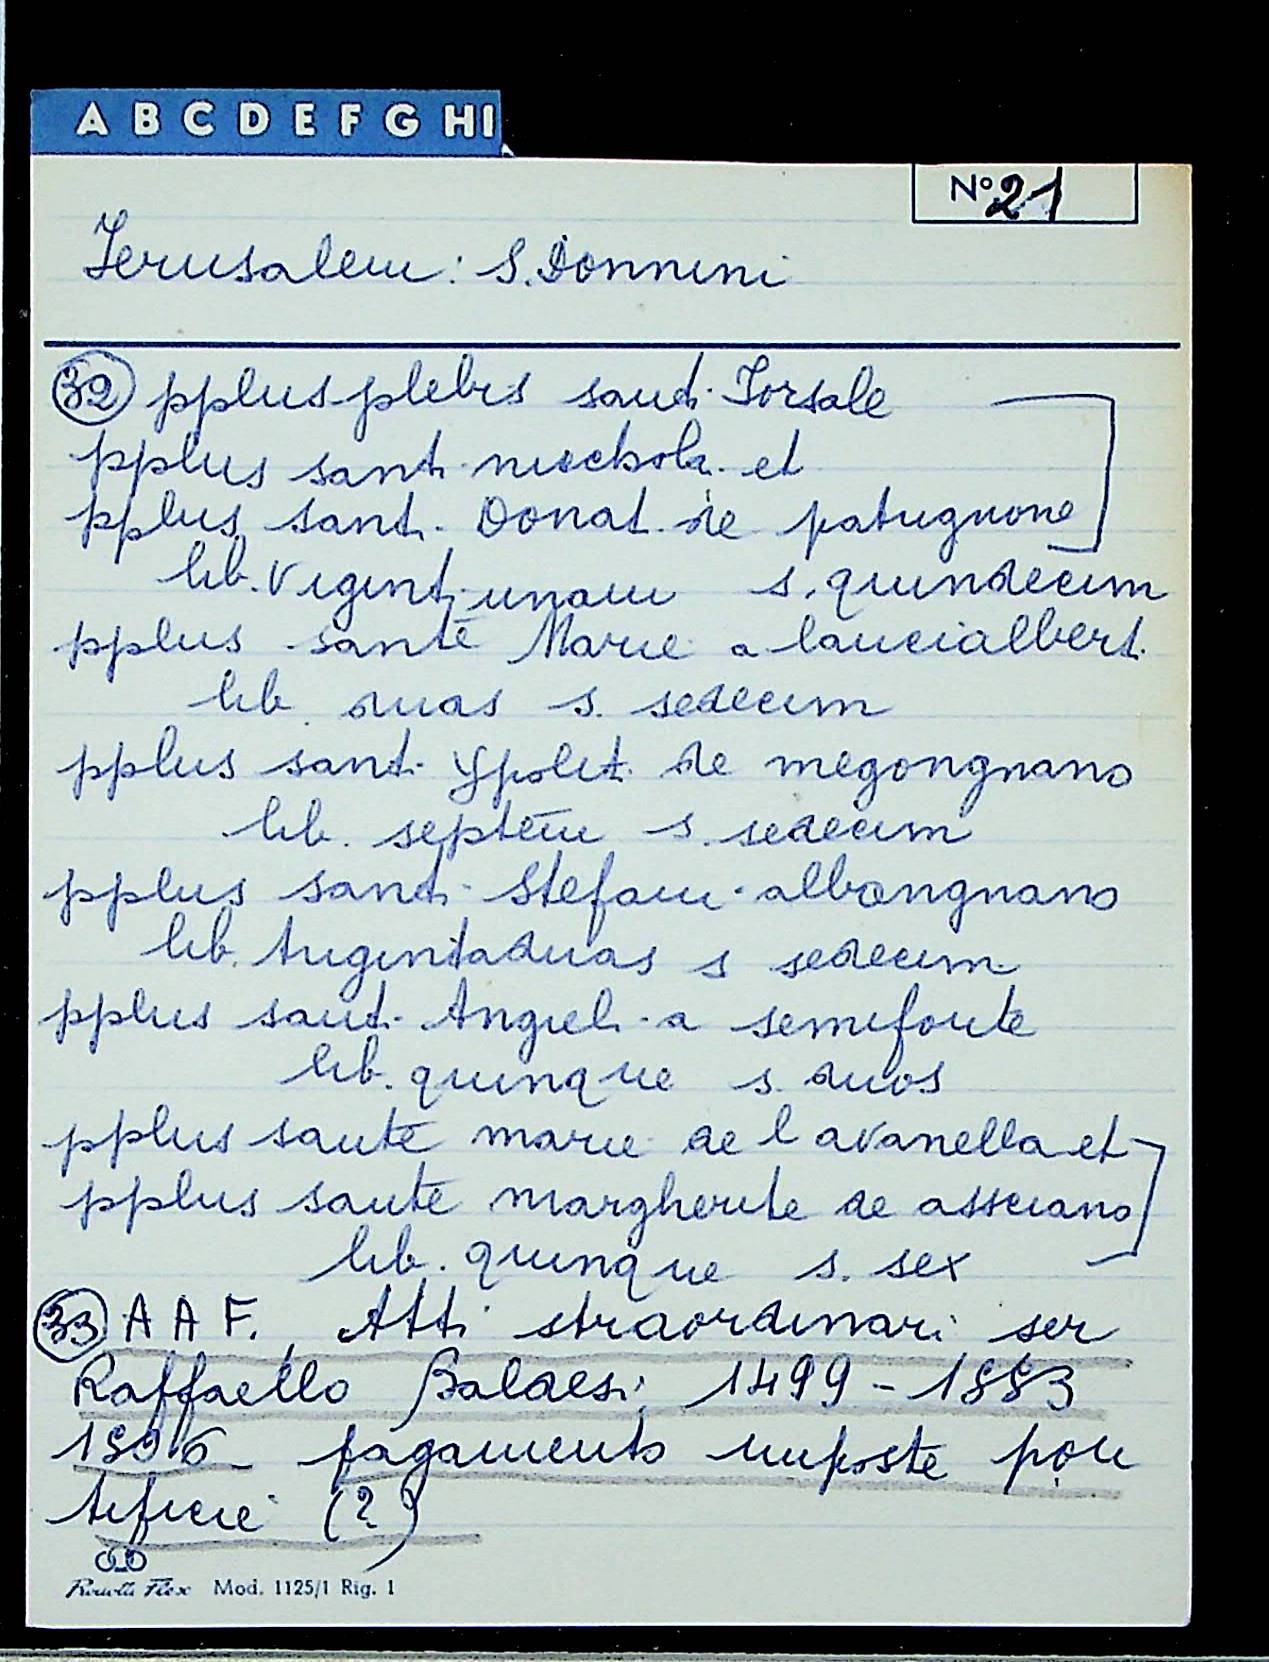 A B C D E F G H I
Nº 21
Ierusalem: S. Donnini
32 pplus plebis sant. Iorsale
pplus sant. nicchola. et
pplus sant. Donat. de patrignone
lib. vigint. unam s. quindecim
pplus sante Marie a lancialbert.
lib. duas s. sedecim
pplus sant. Ypolit. de megongnano
lib. septem s. sedecim
pplus sant. Stefani. albongnano
lib. trigintaduas s sedecim
pplus sant. Angieli. a semifonte
lib. quinque s. duos
pplus sante marie de l avanella et
pplus sante margherite de assciano
lib. quinque s. sex
33 A A F. Atti straordinari ser
Raffaello Baldesi, 1499-1553
pagamento imposte pon
tificie (2)
Mod. 1125/1 Rig. 1